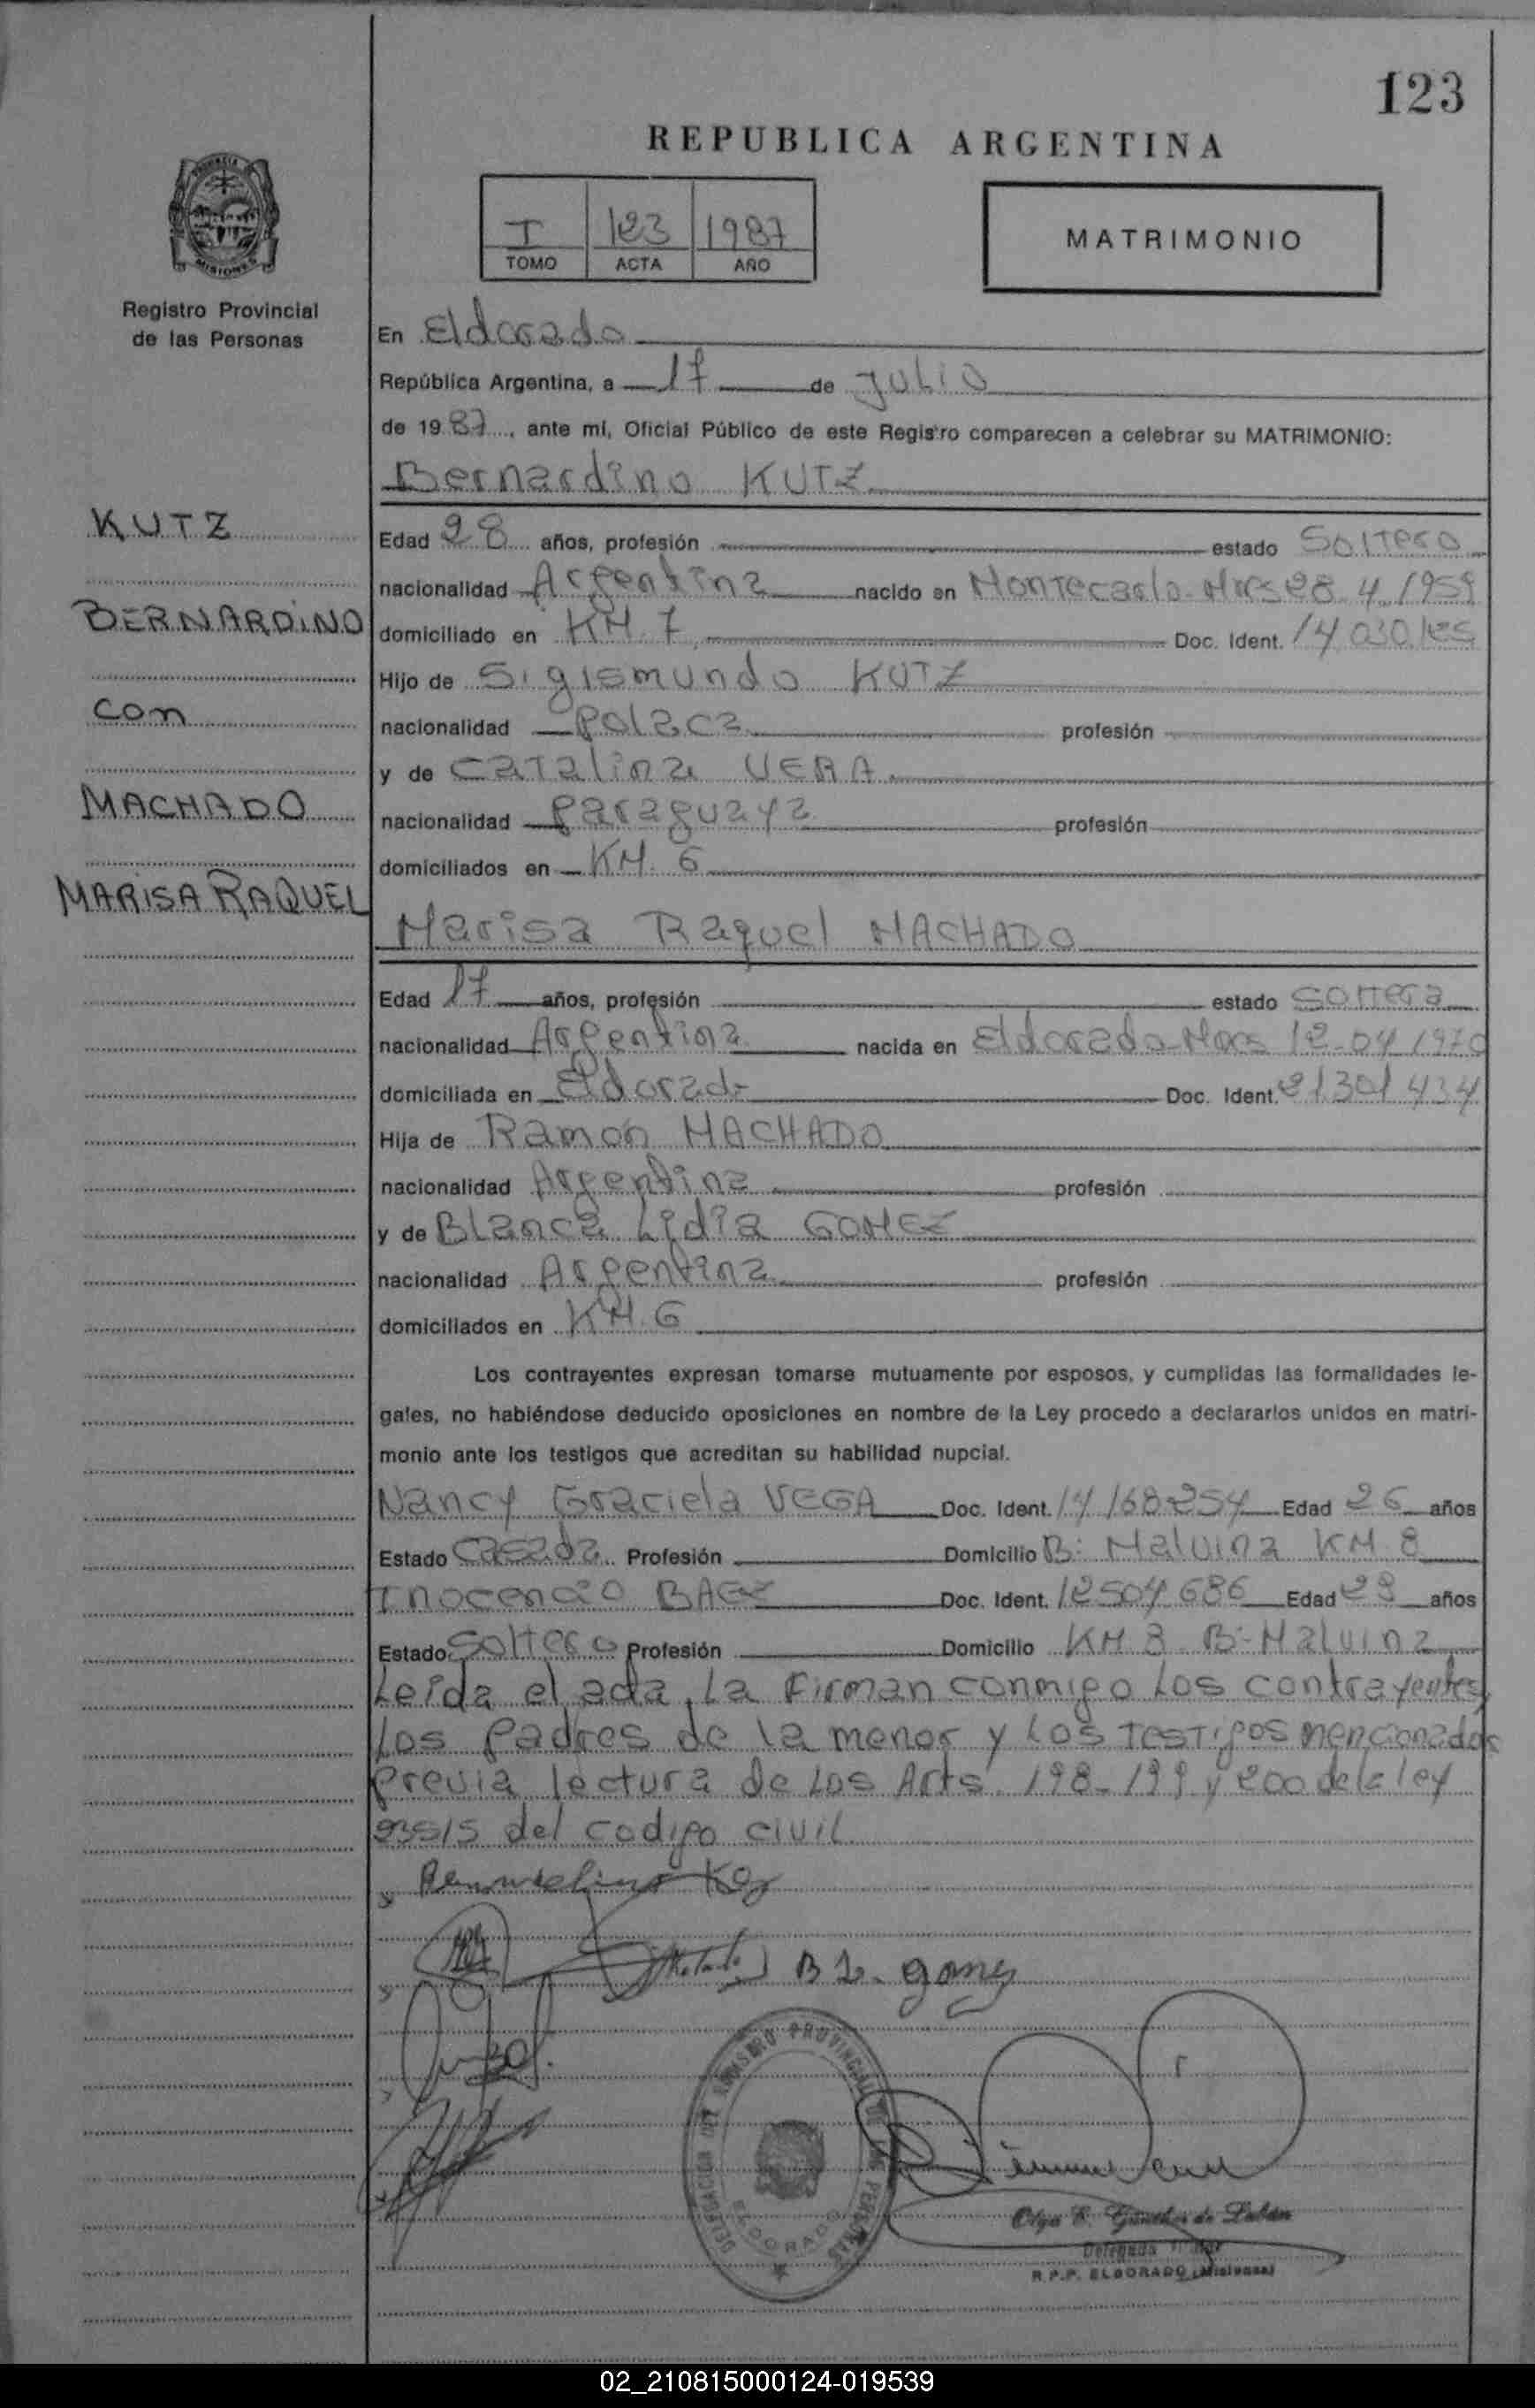 123
REPUBLICA ARGENTINA
PROVINCIA
MISIONES
Registro Provincial
de las Personas
I 123 1987
TOMO ACTA AÑO
MATRIMONIO
En Eldorado
República Argentina, a 17 de JULIO
de 1987, ante mí, Oficial Público de este Registro comparecen a celebrar su MATRIMONIO:
Bernardino KUTZ
KUTZ
BERNARDINO
con
MACHADO
MARISA RAQUEL
Edad 28 años, profesión estado Soltero
nacionalidad Argentina nacido en Montecarlo-Mnes 28.4.1959
domiciliado en KM.7 Doc. Ident. 14.030.125
Hijo de Sigismundo KUTZ
nacionalidad polaca profesión
y de Catalina VERA
nacionalidad paraguaya profesión
domiciliados en KM. 6
Marisa Raquel MACHADO
Edad 17 años, profesión estado soltera
nacionalidad Argentina nacida en Eldorado-Mnes 12-04-1970
domiciliada en Eldorado Doc. Ident. 21.301.434
Hija de Ramón MACHADO
nacionalidad Argentina profesión
y de Blanca Lidia GOMEZ
nacionalidad Argentina profesión
domiciliados en KM.6
Los contrayentes expresan tomarse mutuamente por esposos, y cumplidas las formalidades le-
gales, no habiéndose deducido oposiciones en nombre de la Ley procedo a declararlos unidos en matri-
monio ante los testigos que acreditan su habilidad nupcial.
Nancy Graciela VEGA Doc. Ident. 14.168.254 Edad 26 años
Estado casada Profesión Domicilio B: Malvina KM.8
Inocencio BAEZ Doc. Ident. 12.504.686 Edad 29 años
Estado Soltero Profesión Domicilio KM 8 B:-Malvina
Leída el acta, la firman conmigo los contrayentes,
los padres de la menor y los testigos mencionados
previa lectura de los Arts 198-199 y 200 de la ley
23515 del codigo civil.
B L. gomez
DELEGACION DEL REGISTRO PROVINCIAL DE LAS PERSONAS
ELDORADO
Olga E. Günther de
Delegada Titular
R.P.P. ELDORADO (Misiones)
02_210815000124-019539